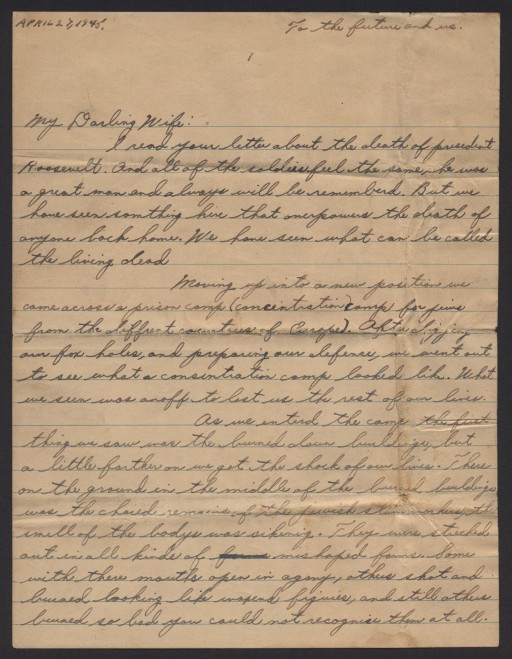 APRIL 27, 1945.
To the future and us.
1
My Darling Wife:
I read your letter about the death of president
Roosevelt. And all of the soldiers feel the same, he was
a great man and always will be rememberd. But we
have seen somthing hive that overpowers the death of
anyone back home. We have seen what can be called
the living dead
Moving up into a new position we
came across a prison camp (concintration camp for jews
from the diffrect countries of Europe). After digging
our fox holes, and preparing our defense, we went out
to see what a consintration camp looked like. What
we seen was anoff to last us the rest of our lives.
As we enterd the came the first
thing we saw was the burned down buildings, but
a little farther on we got the shock of our lives. There
on the ground in the middle of the buildings
was the chared remains of the jewish the
smell of the bodys was sikening. They were streched
out in all kinds of mishaped forms. Some
with there mouths open in agony, others shot and
burned looking like figures, and still others
burned so bad you could not recognise them at all.